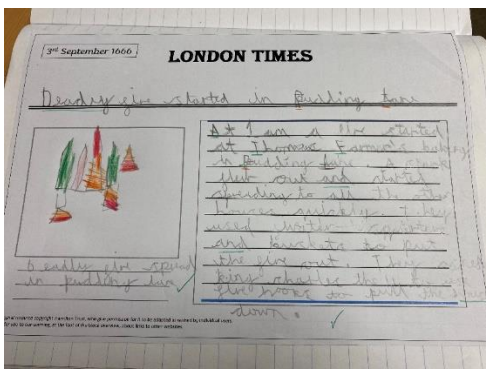 3rd September 1666
LONDON TIMES
Deadly fire started in Pudding Lane
At 1 am a fire started
at Thomas Farriner's bakery
in Pudding Lane. A spark
flew out and started
spreading to all the other
houses quickly. They
used water squirters
and buckets to put
the fire out. They
king charles
fire hooks too pull the
down.
Deadly fire spread
in pudding lan